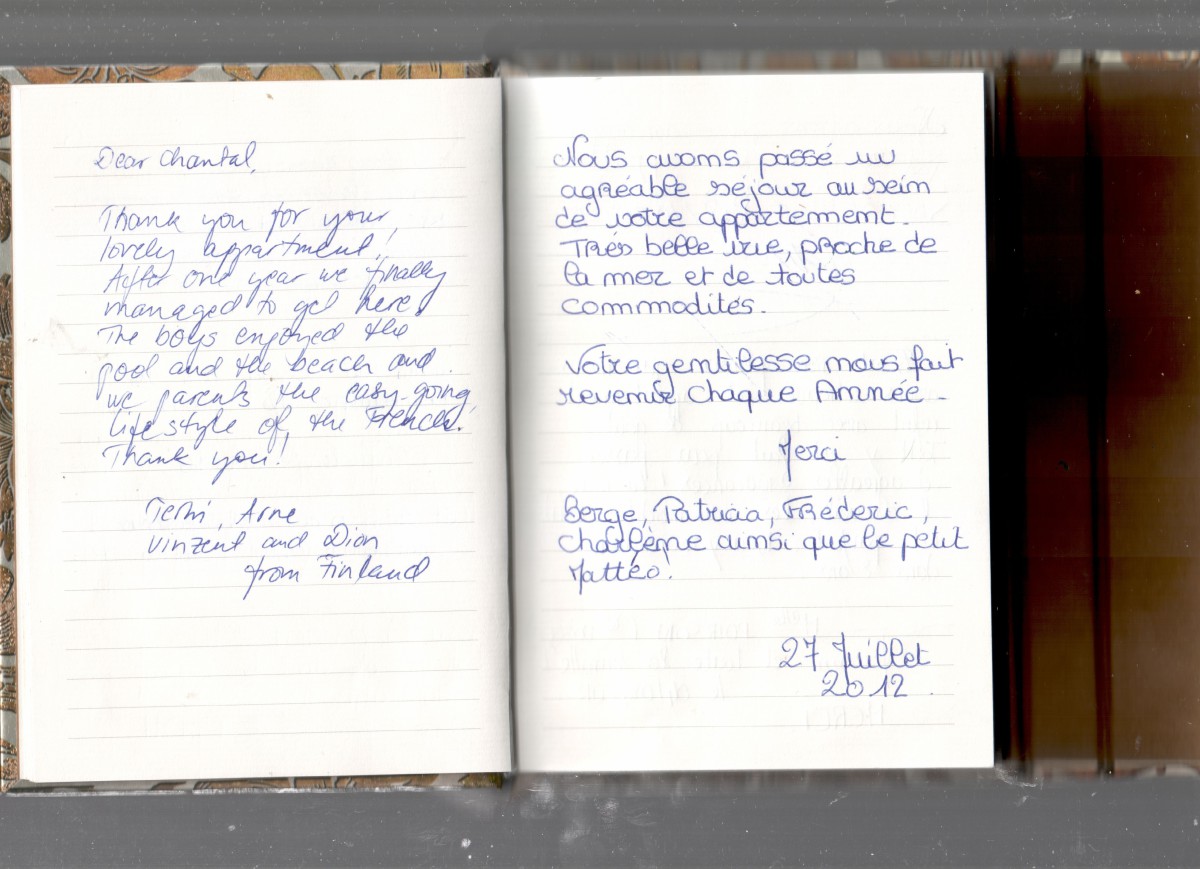 Dear Chantal,
Thank you for your
lovely appartment!
After one year we finally
managed to get here.
The boys enjoyed the
pool and the beach and
we parents the easy-going
lifestyle of the French.
Thank you!
Arne
Vinzent and Dion
from Finland
Nous avons passé un
agréable séjour au sein
de votre appartement.
Très belle vue, proche de
la mer et de toutes
commodités.
Votre gentilesse nous fait
revenir chaque Année -
Merci
Patricia, Fréderic,
Charlène ainsi que le petit
Mattéo!
27 Juillet
2012.